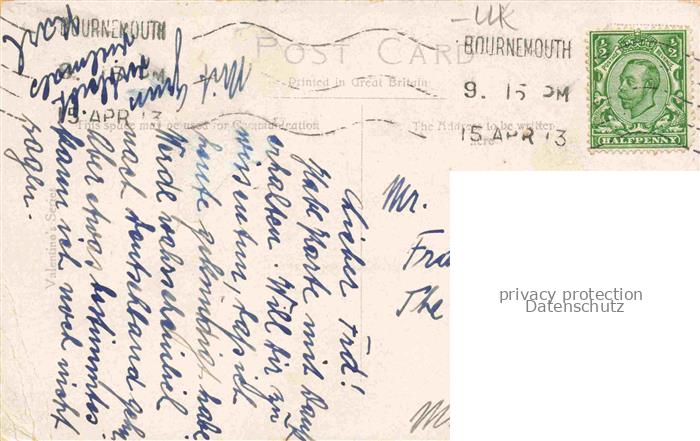 BOURNEMOUTH
15 APR 13
POST CARD
Printed in Great Britain
UK
BOURNEMOUTH
9. 15 PM
15 APR 13
HALFPENNY
This space may be used for Communication
The Address to be written here
Valentine's Series
Lieber Frd!
Habe Karte mit Dank
erhalten. Will dir zu
wissen tun, daß ich
heute gekündigt habe
Werde wahrscheinlich
nach Deutschland gehn
Aber etwas bestimmtes
kann ich noch nicht
sagen.
Mit
Mr.
Fra
The
privacy protection
Datenschutz